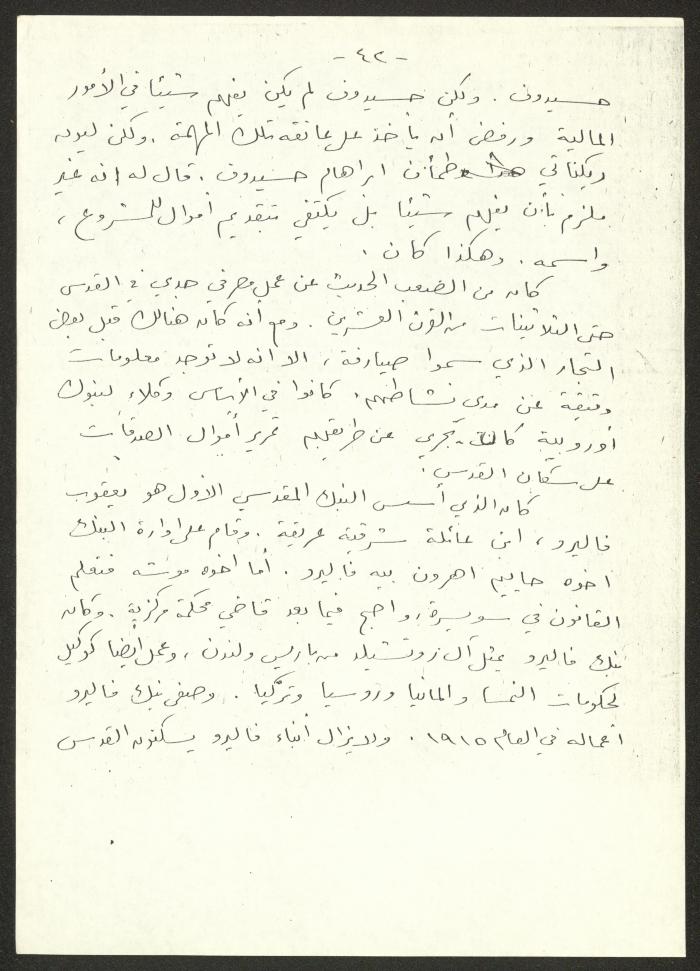 - ٤٢ -
حسيدوف . ولكن حسيدوف لم يكن يفهم شيئا في الأمور
المالية ورفض أن يأخذ على عاتقه تلك المهمة . ولكن ليون
ريكناتي طمأن ابراهام حسيدوف . قال له انه غير
ملزم بأن يفهم شيئا بل يكتفي بتقديم أموال للمشروع ،
واسمه . وهكذا كان .
كان من الصعب الحديث عن عمل مصرفي جدي في القدس
حتى الثلاثينات من القرن العشرين . ومع أنه كان هنالك قبل بعض
التجار الذي سموا صيارفة ، الا انه لا توجد معلومات
وثيقة عن مدى نشاطهم . كانوا في الأساس وكلاء لبنوك
أوروبية كانت تجري عن طريقهم تمرير أموال الصدقات
على سكان القدس .
كان الذي أسس البنك المقدسي الاول هو يعقوب
فاليرو ، ابن عائلة شرقية عريقة . وقام على ادارة البنك
اخوه حاييم اهرون بيه فاليرو . أما اخوه موشه فتعلم
القانون في سويسرة ، واصبح فيما بعد قاضي محكمة مركزية . وكان
بنك فاليرو يمثل آل روتشيلد من باريس ولندن ، وعمل ايضا كوكيل
لحكومات النمسا والمانيا وروسيا وتركيا . وصفى بنك فاليرو
اعماله في العام ١٩١٥ . ولا يزال أبناء فاليرو يسكنون القدس